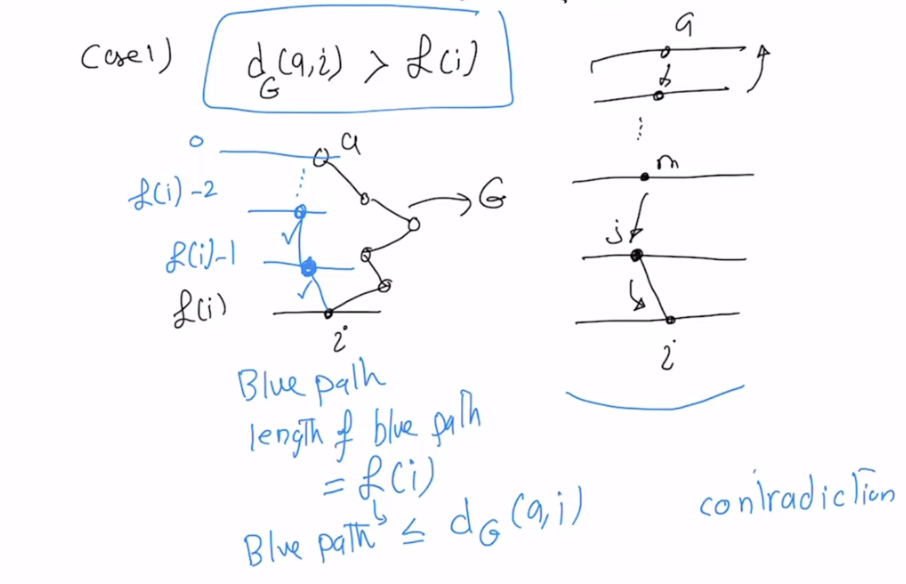 Case 1)
d_G(a,i) > ℓ(i)
a
0
a
ℓ(i)-2
m
G
j
ℓ(i)-1
ℓ(i)
i
i
Blue path
length of blue path
= ℓ(i)
Blue path ≤ d_G(a,i)
contradiction